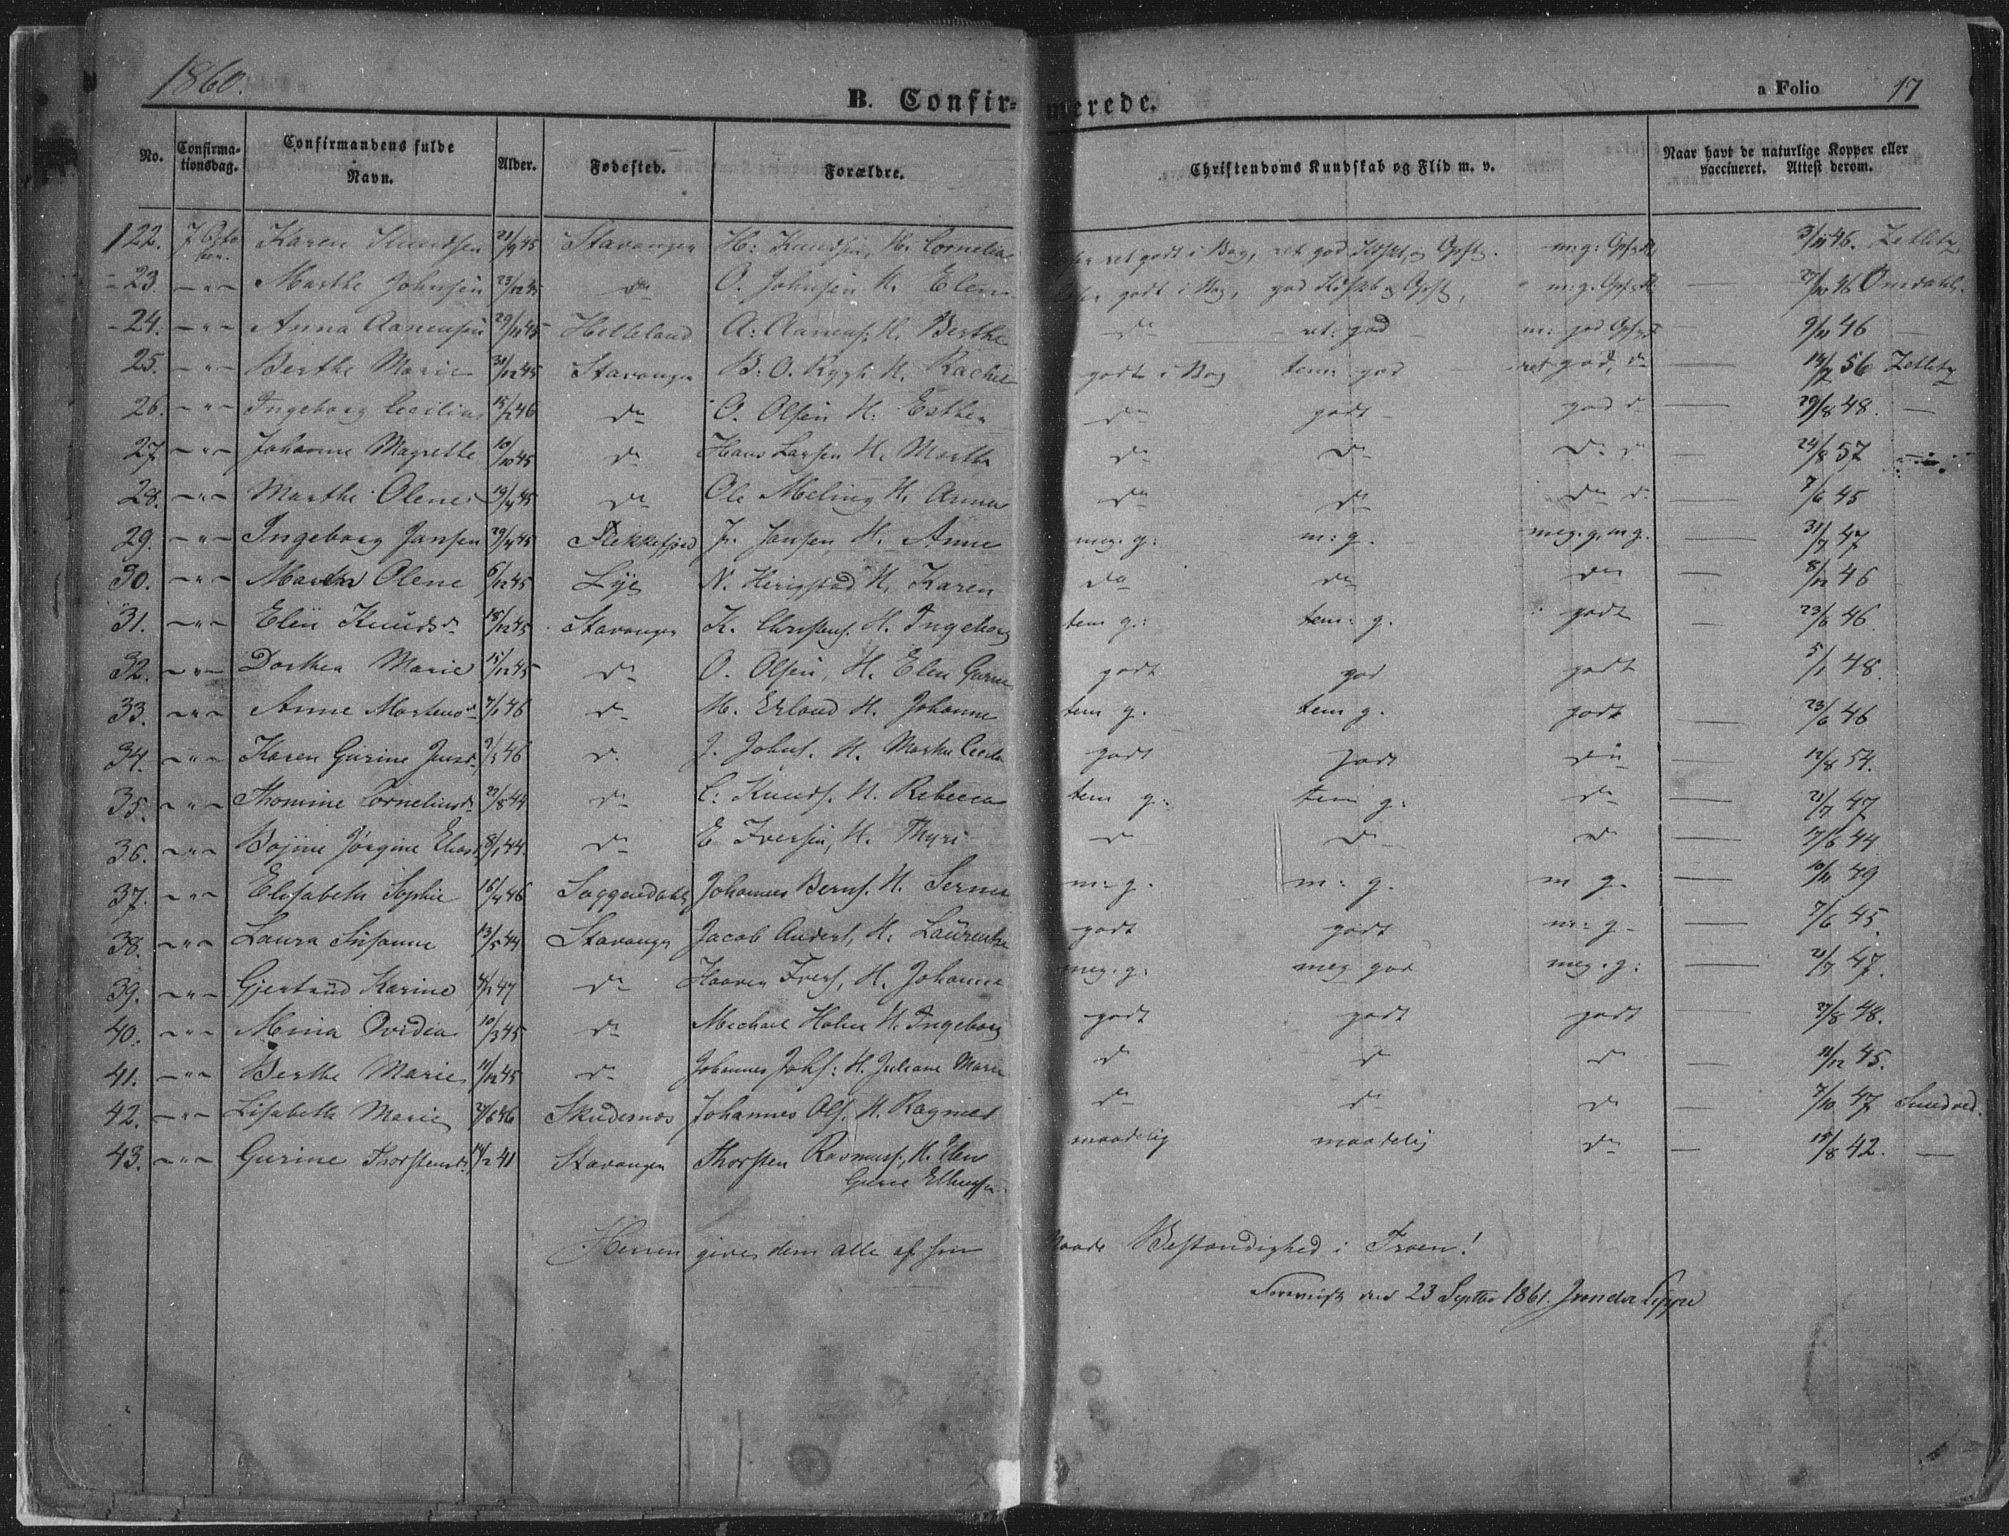 1860.
B. Confirmerede.
a Folio 17
No. Confirmationsdag. Confirmandens fulde Navn. Alder. Fødested. Forældre. Christendoms Kundskab og Flid m. v. Naar havt de naturlige Kopper eller vaccineret. Attest derom.
122. 7 Octo ber. Karen Knudsen 21/9 45 Stavanger H: Knudsen, H. Cornelia ret godt i Bog, ret god m: g: 3/11 46. Zetletz
23. -"- Marthe Johnsen 23/12 45 do O. Johnsen H. Elen godt i Bog, god m: g. 27/10 46 Omdahl.
24. -"- Anna Aanensen 29/11 45 Helleland A: Aanens. H. Berthe do ret: god m: god 9/11 46 —
25. -"- Berthe Marie 31/12 45 Stavanger B. O. Rygh H. Rachel godt i Bog tem: god ret god, d 14/7 56 Zetletz
26. -"- Ingeborg Cecilia 18/2 46 do O. Olsen H. Esther do godt god d 29/8 48. —
27. -"- Johanne Magrethe 10/10 45 do Hans Larsen H. Martha do do do d 24/8 57
28. -"- Marthe Olene 19/4 45 do Ole Meling H. Anna do do do d 7/6 45
29. -"- Ingeborg Jansen 29/4 45 Flekkefjord J. Jansen H. Anne meg. g: m: g. meg. g. m g. 31/7 47
30. -"- Olene 6/12 45 Lye N. Herigstad H. Karen do do do 8/12 46
31. -"- Elen Knudsdr 18/12 45 Stavanger K. Christens. H. Ingeborg tem g.: tem: g. godt 23/6 46.
32. -"- Dorthea Marie 15/12 45 do O. Olsen, H. Elen Gurine godt god godt 5/1 48.
33. -"- Anne Martensdr 7/1 46 do M. Erland H. Johanne tem g. tem g. godt 23/6 46
34. -"- Karen Gurine Jensdr 9/3 46 do J. Johns. H. Marthe Cecilia godt godt do 12/8 54.
35. -"- Thomine Corneliusdr 23/8 44 do C: Knuds. H. Rebecca tem g: tem g: do 21/7 47
36. -"- Bojine Jørgine Eliasdr 8/1 44. do E Iversen, H. Thyri d do do 17/6 44
37. -"- Elisabeth Sophie 16/4 46 Soggendahl Johannes Berns. H. Serna m: g. m: g. m g. 10/11 49
38. -"- Laura Susanne 13/5 44 Stavanger Jacob Anders, H. Laurentze godt godt m: g 7/6 45.
39. -"- Gjertrud Karine 4/1 47 do Haaver Ivers, H. Johanna meg. g: meg god meg. g: 21/7 47.
40. -"- Mina Ovidia 10/3 45 do Michael Holm H. Ingeborg godt godt godt 27/8 48.
41. -"- Berthe Marie 11/12 45 do Johannes Johs: H. Juliane Marie d d d 11/12 45.
42. -"- Lisabeth Marie 27/6 46 Skudesnæs Johannes Ols. H. Ragnild do do do 7/10 47 Smedved.
43. -"- Gurine Thorstensdr 14/2 41 Stavanger Thorsten Rasmuss, H. Elen maadelig maadelig do 15/8 42. —
Gurie Ellingsen
Herren give dem alle af sin Naade Bestandighed i Troen!
den 23 Septbr 1861.